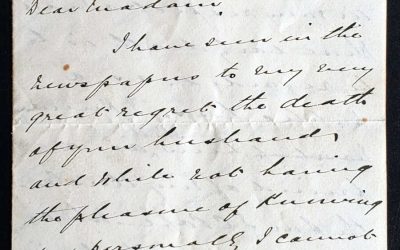 Dear Madam,
I have seen in the
newspapers to my very
great regret the death
of your husband,
and while not having
the pleasure of knowing
you personally, I cannot